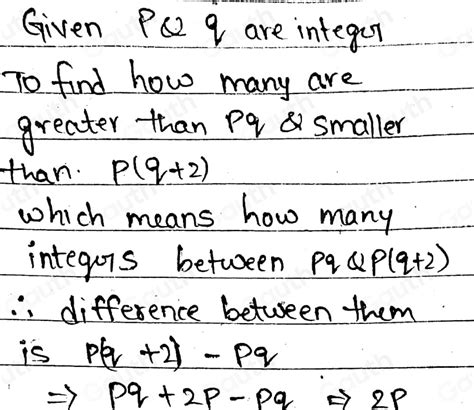 Given P & q are integer
To find how many are
greater than Pq & smaller
than. P(q+2)
which means how many
integers between pq & P(q+2)
∴ difference between them
is P(q +2) - Pq
⇒ Pq + 2P - Pq ⇒ 2P